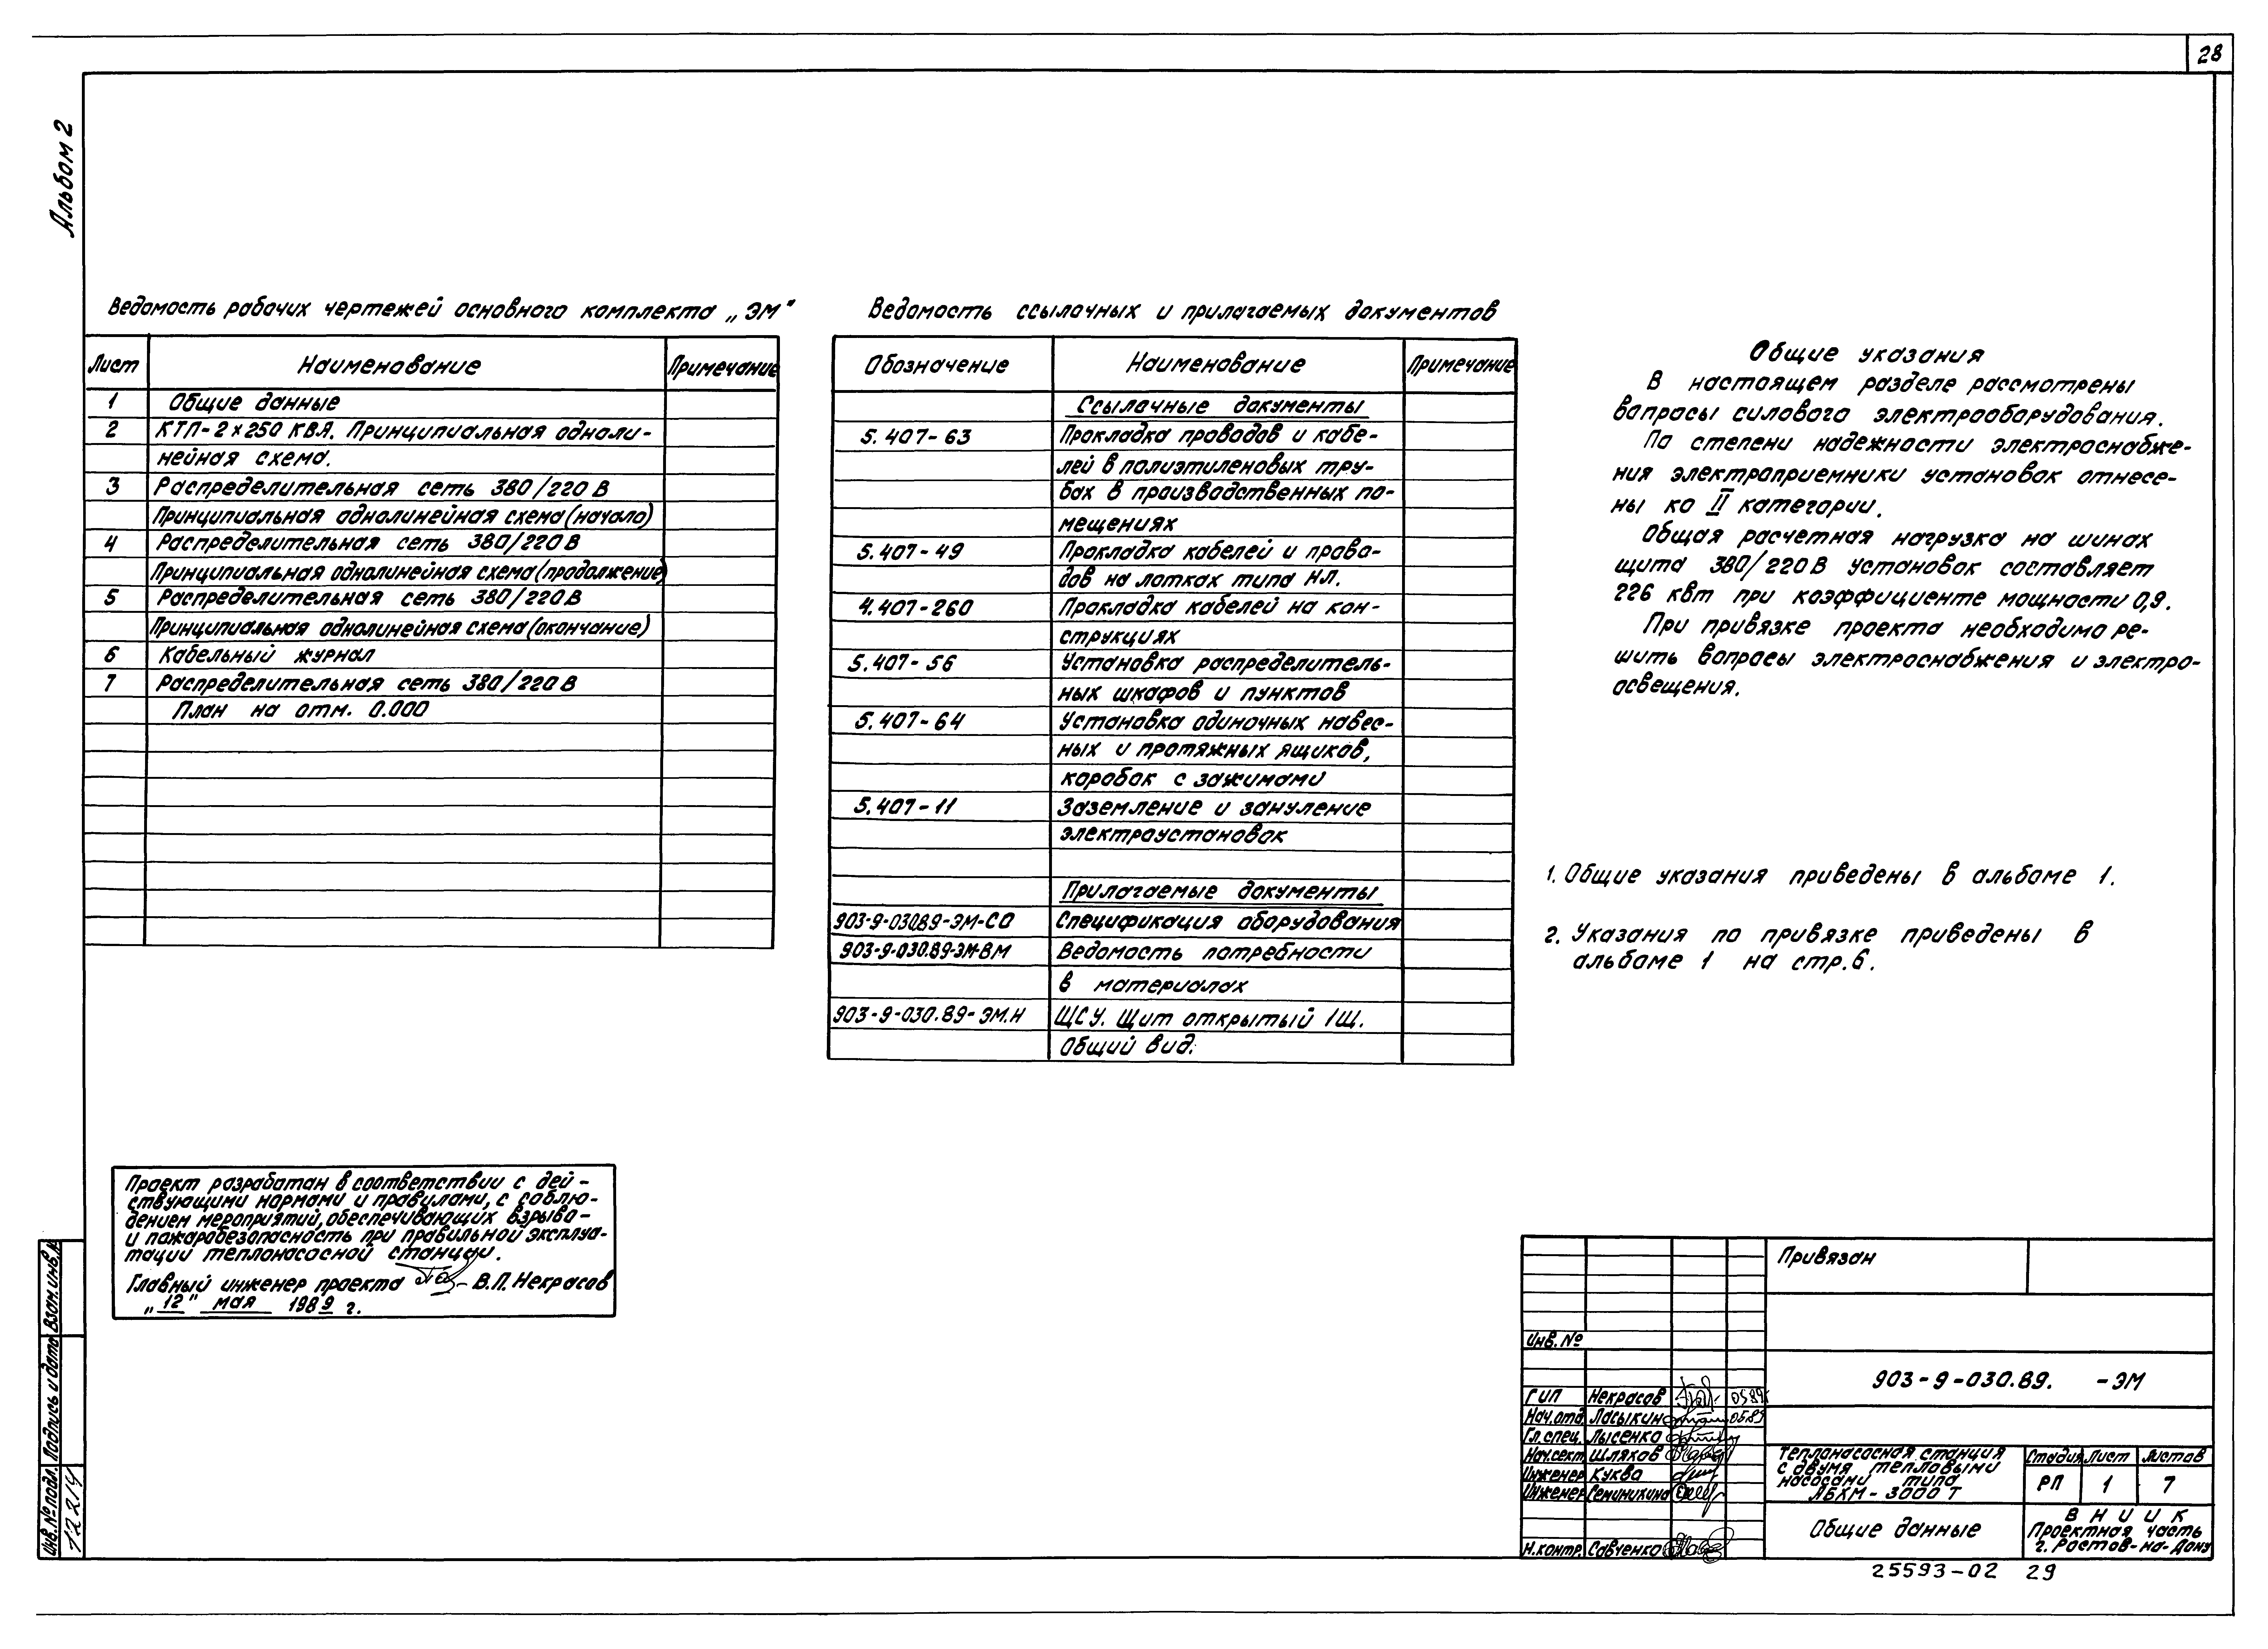 28
Альбом 2
Ведомость рабочих чертежей основного комплекта „ЭМ"
Лист Наименование Примечание
1 Общие данные
2 КТП-2×250 КВА. Принципиальная одноли-
нейная схема.
3 Распределительная сеть 380/220 В
Принципиальная однолинейная схема (начало)
4 Распределительная сеть 380/220 В
Принципиальная однолинейная схема (продолжение)
5 Распределительная сеть 380/220 В
Принципиальная однолинейная схема (окончание)
6 Кабельный журнал
7 Распределительная сеть 380/220 В
План на отм. 0.000
Ведомость ссылочных и прилагаемых документов
Обозначение Наименование Примечание
Ссылочные документы
5.407-63 Прокладка проводов и кабе-
лей в полиэтиленовых тру-
бах в производственных по-
мещениях
5.407-49 Прокладка кабелей и прово-
дов на лотках типа НЛ.
4.407-260 Прокладка кабелей на кон-
струкциях
5.407-56 Установка распределитель-
ных шкафов и пунктов
5.407-64 Установка одиночных навес-
ных и протяжных ящиков,
коробок с зажимами
5.407-11 Заземление и зануление
электроустановок
Прилагаемые документы
903-9-030.89-ЭМ-СО Спецификация оборудования
903-9-030.89-ЭМ-ВМ Ведомость потребности
в материалах
903-9-030.89-ЭМ.Н ЩСУ. Щит открытый 1Щ.
Общий вид.
Общие указания
В настоящем разделе рассмотрены
вопросы силового электрооборудования.
По степени надежности электроснабже-
ния электроприемники установок отнесе-
ны ко II категории.
Общая расчетная нагрузка на шинах
щита 380/220 В установок составляет
226 квт при коэффициенте мощности 0,9.
При привязке проекта необходимо ре-
шить вопросы электроснабжения и электро-
освещения.
1. Общие указания приведены в альбоме 1.
2. Указания по привязке приведены в
альбоме 1 на стр.6.
Проект разработан в соответствии с дей-
ствующими нормами и правилами, с соблю-
дением мероприятий, обеспечивающих взрыво-
и пожаробезопасность при правильной эксплуа-
тации теплонасосной станции.
Главный инженер проекта В.П. Некрасов
„12" мая 1989 г.
Взам.инв.№
Подпись и дата
Инв.№ подл.
12214
Привязан
Инв. №
903-9-030.89. -ЭМ
ГИП Некрасов 05.89г
Нач.отд. Ласыкин 05.89
Гл.спец. Лысенко
Нач.сект. Шляхов
Инженер Куква
Инженер Семинихина
Н.контр. Савченко
Теплонасосная станция
с двумя тепловыми
насосами типа
АБХМ-3000 Т
Стадия Лист Листов
РП 1 7
Общие данные
ВНИИК
Проектная часть
г. Ростов-на-Дону
25593-02 29